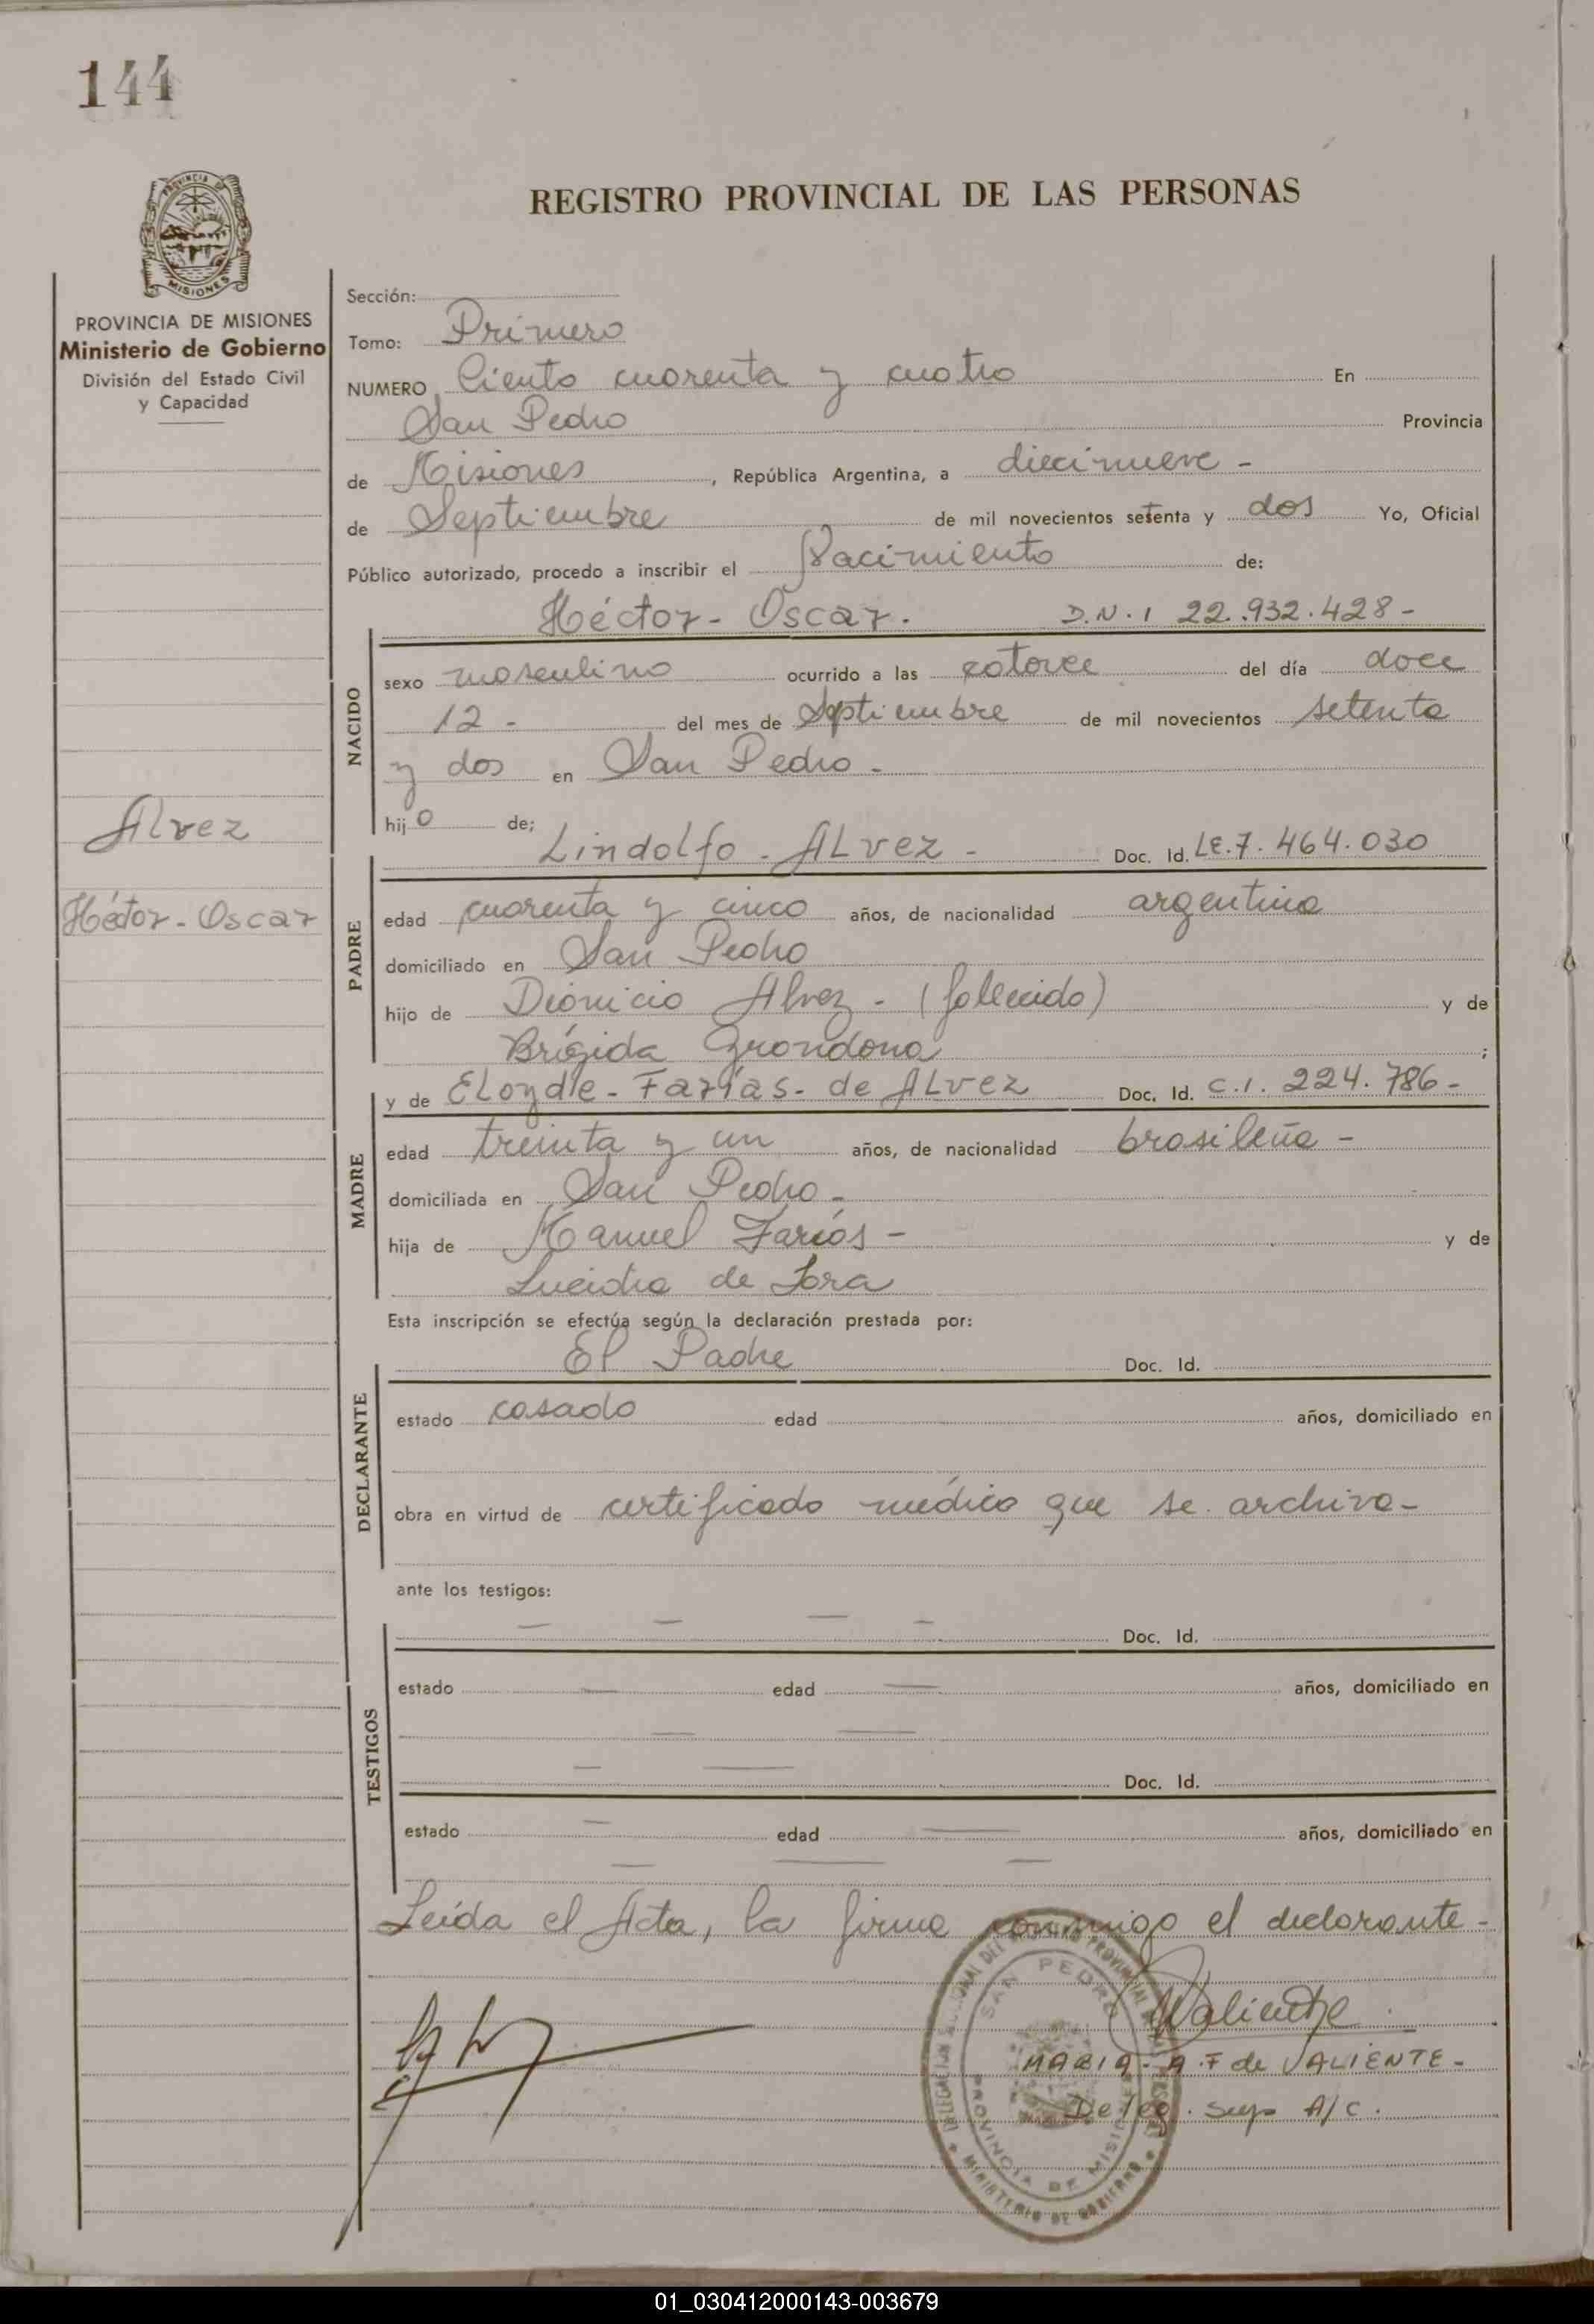 144
REGISTRO PROVINCIAL DE LAS PERSONAS
MISIONES
PROVINCIA DE MISIONES
Ministerio de Gobierno
División del Estado Civil
y Capacidad
Alvez
Héctor - Oscar
Sección:
Tomo: Primero
NUMERO Ciento cuarenta y cuatro En
San Pedro Provincia
de Misiones, República Argentina, a diecinueve -
de Septiembre de mil novecientos setenta y dos Yo, Oficial
Público autorizado, procedo a inscribir el Nacimiento de:
Héctor - Oscar. D.N.I 22.932.428 -
NACIDO
sexo masculino ocurrido a las catorce del día doce
12 - del mes de Septiembre de mil novecientos setenta
y dos en San Pedro -
hijo de;
Lindolfo - ALvez - Doc. Id. LE. 7.464.030
PADRE
edad cuarenta y cinco años, de nacionalidad argentina
domiciliado en San Pedro
hijo de Dionicio Alvez - (fallecido) y de
Brígida Grondona ;
y de ELoydle - Farías - de ALvez Doc. Id. C.I. 224.786 -
MADRE
edad treinta y un años, de nacionalidad brasileña -
domiciliada en San Pedro -
hija de Manuel Farías - y de
de Lara
Esta inscripción se efectúa según la declaración prestada por:
El Padre Doc. Id.
DECLARANTE
estado casado edad años, domiciliado en
obra en virtud de certificado médico que se archiva -
ante los testigos:
Doc. Id.
TESTIGOS
estado edad años, domiciliado en
Doc. Id.
estado edad años, domiciliado en
Leída el Acta, la firma conmigo el declarante -
Valiente
MARIA - A. F de VALIENTE -
Deleg. Sup A/C.
SAN PEDRO
PROVINCIA DE MISIONES
MINISTERIO DE GOBIERNO
01_030412000143-003679